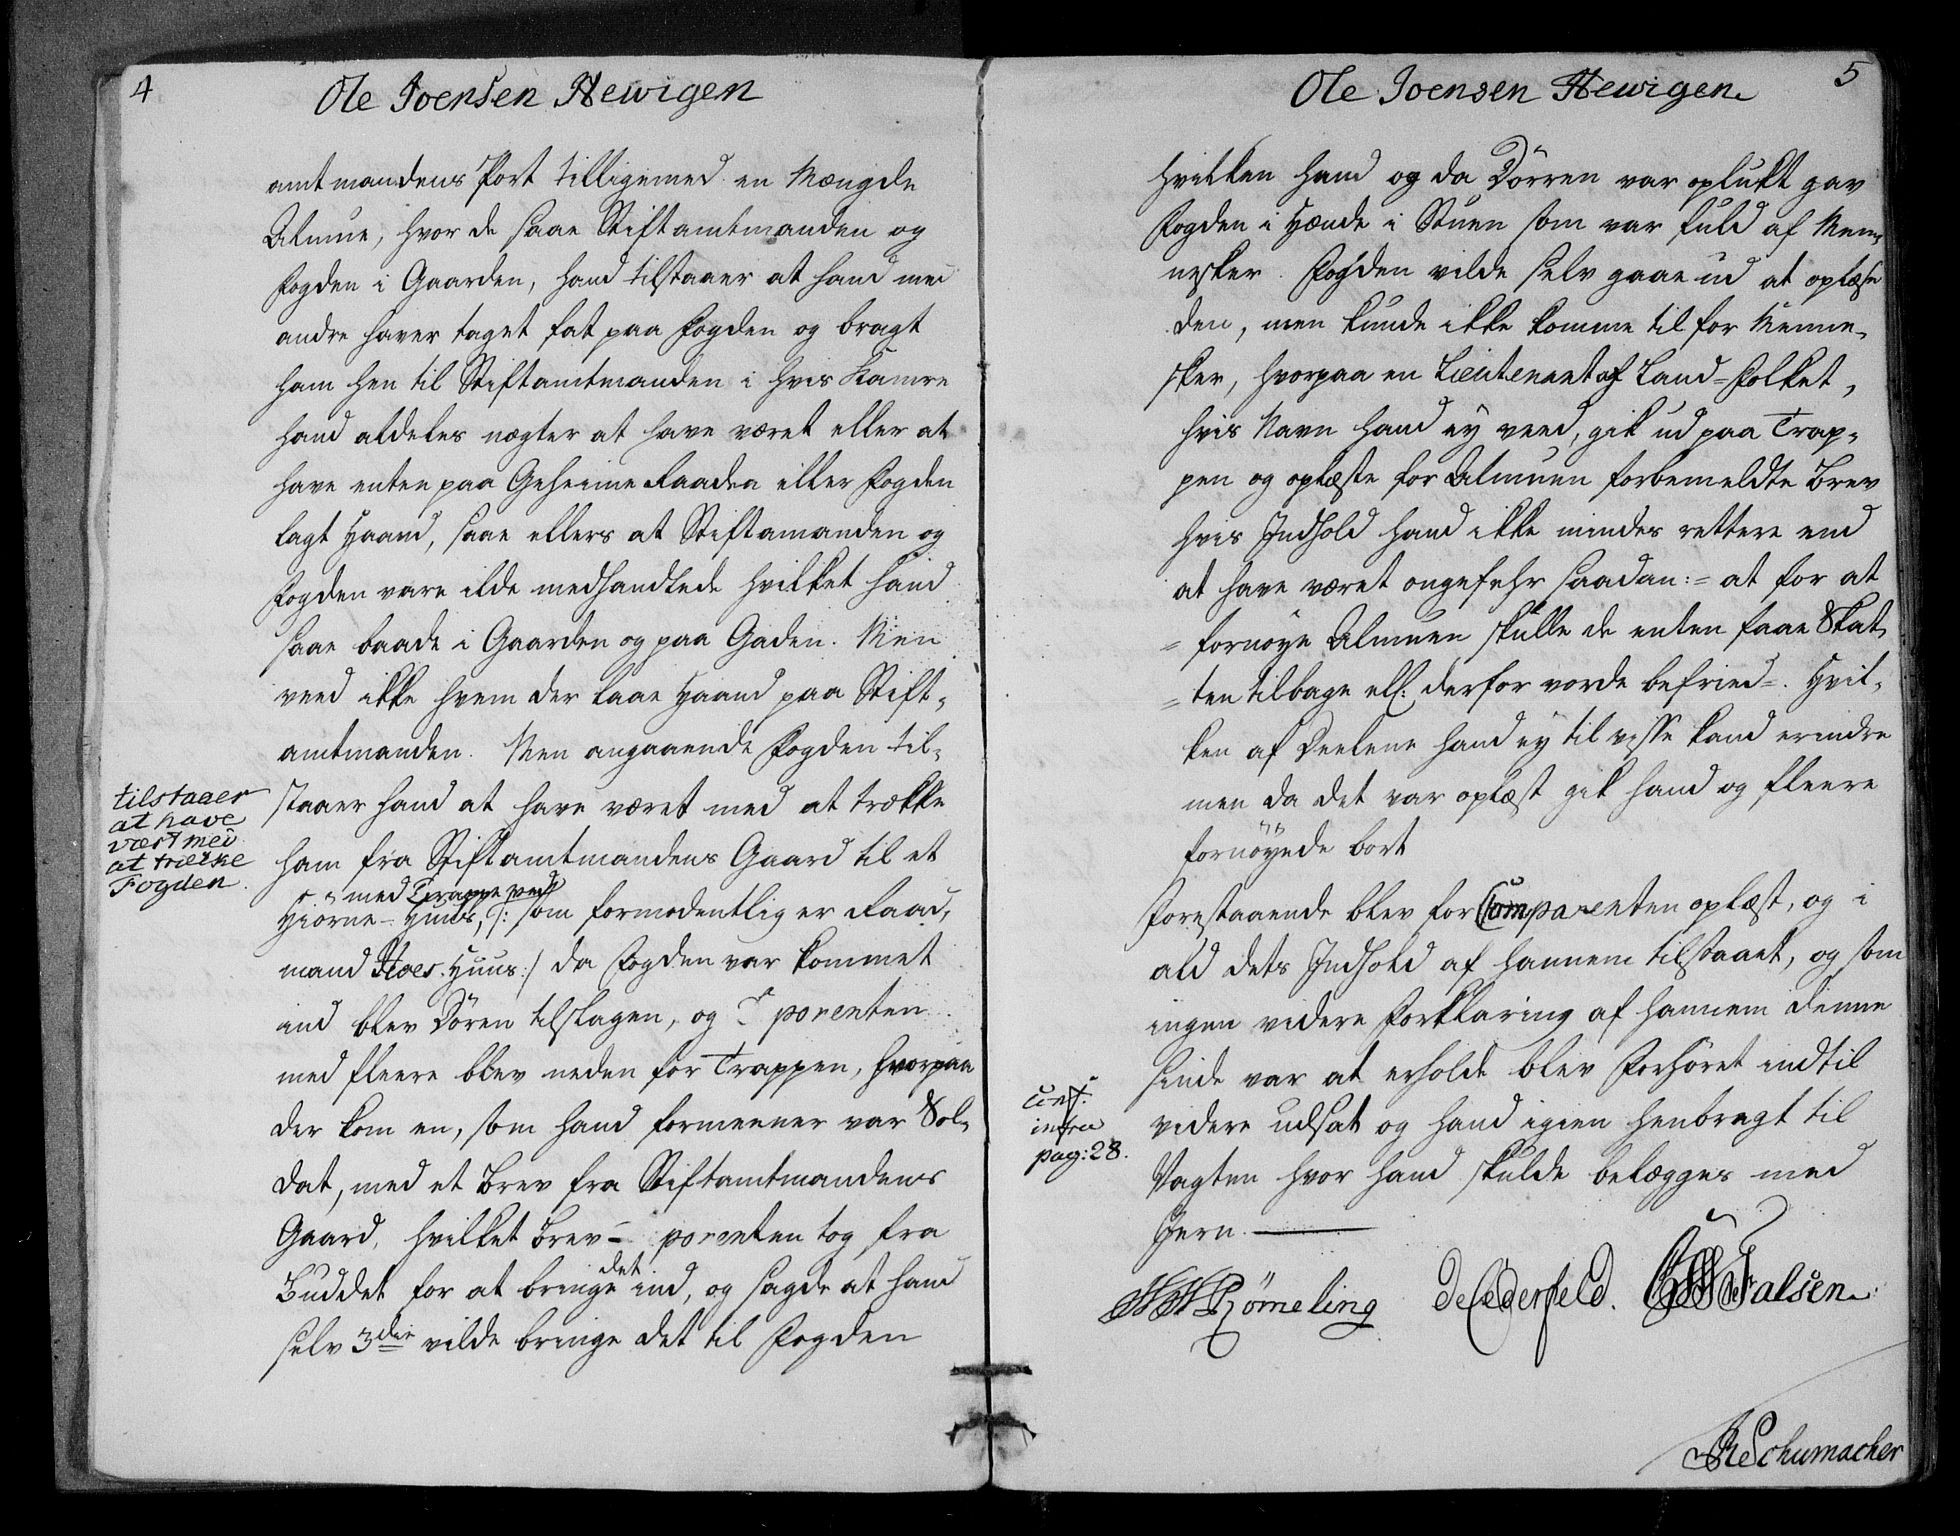 4
Ole Joensen Hewigen
amtmandens Port tilligemed en Mængde
Almue, hvor de saae Stiftamtmanden og
Fogden i Gaarden, hand tilstaaer at hand med
andre haver taget fat paa Fogden og bragt
ham hen til Stiftamtmanden i hvis Kamre
hand aldeles nægter at have været eller at
have enten paa Geheime Raaden eller Fogden
lagt Haand, saae ellers at Stiftamanden og
Fogden vare ilde medhandlede hvilket hand
saae baade i Gaarden og paa Gaden. Men
veed ikke hvem der laae Haand paa Stift-
amtmanden. Men angaaende Fogden til-
tilstaaer
at have
vært med
at trække
Fogden.
staaer hand at have været med at trække
ham fra Stiftamtmandens Gaard til et
med Trappe ved
Hiørne-Huus, /: som formodentlig er Raad-
mand Hoes Huus :/ da Fogden var kommet
ind blev Dören tilslagen, og parenten
med fleere blev neden for Trappen, hvorpaa
der kom en, som hand formeener var Sol-
dat, med et Brev fra Stiftamtmandens
Gaard, hvilket Brev parenten tog fra
Buddet for at bringe det ind, og sagde at hand
selv 3die vilde bringe det til Fogden
5
Ole Joensen Hewigen
hvilken hand og da Dörren var oplukt gav
Fogden i Hænde i Stuen som var fuld af Men-
nesker. Fogden vilde selv gaae ud at oplæse
den, men kunde ikke komme til for Menne-
sker, hvorpaa en Lieutenant af Land-Folket,
hvis Navn hand ey veed, gik ud paa Trap-
pen og oplæste for Almuen forbemeldte Brev
hvis Indhold hand ikke mindes rettere end
at have været ongefehr saadan:= at for at
= fornøye Almuen skulle de enten faae Skat
= ten tilbage ell: derfor vorde befried =. Hvil-
ken af Deelene hand ey til visse kand erindre
men da det var oplæst gik hand og fleere
fornöyede bort
Forestaaende blev for Comparenten oplæst, og i
ald dets Indhold af hannem tilstaaet, og som
ingen videre Forklaring af hannem denne
sinde var at erholde blev Forhöret indtil
conf.
infra
pag: 28.
videre udsat og hand igien henbragt til
Vagten hvor hand skulde belægges med
Jern.
Römeling deCederfeld. Falsen.
Schumacher